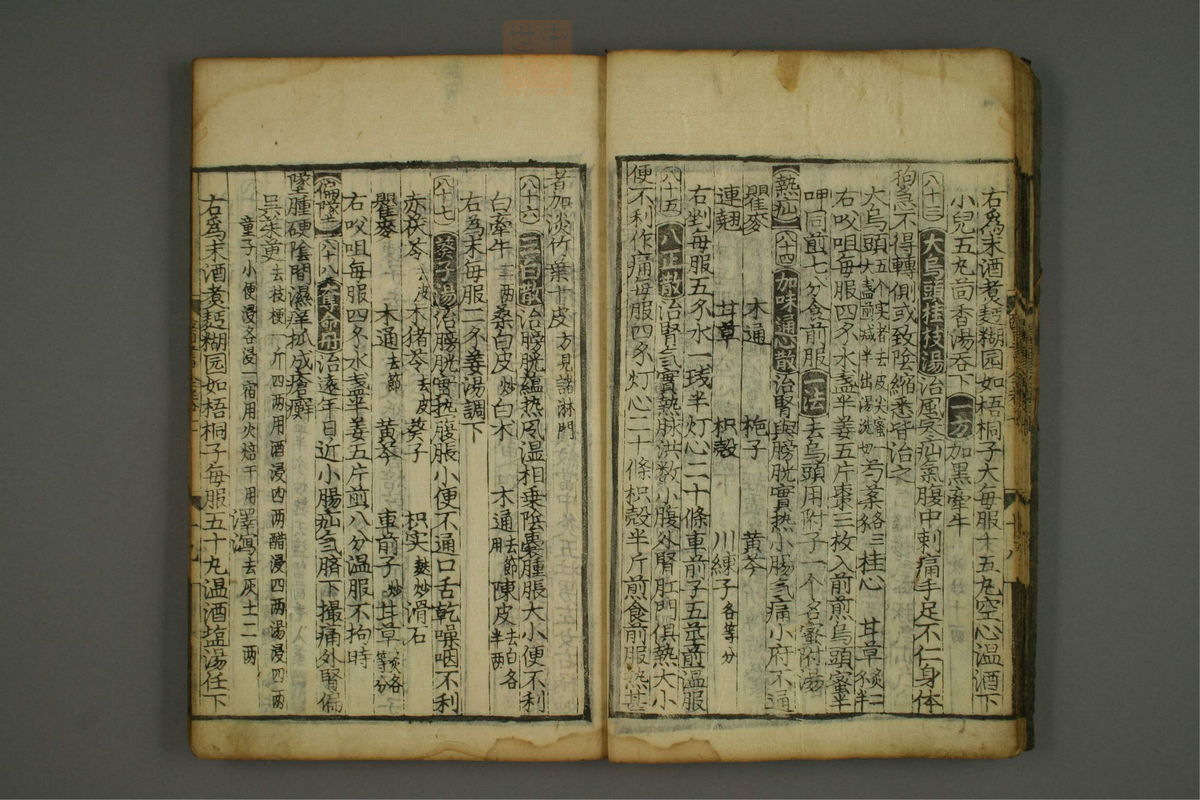 右為末酒煮麪糊园如梧桐子大每服十五丸空心温酒下
小兒五丸茴香湯吞下 一方 加黑牽牛
八十三 大烏頭桂枝湯 治風寒疝氣腹中刺痛手足不仁身体
拘急不得轉側或致陰縮悉皆治之
大烏頭 五个實者去皮尖蜜一大盞煎减半出湯洗切 芍藥 桂心 甘草
右㕮咀每服四水盞半姜五片棗三枚入前煎烏頭蜜半
呷同煎七分食前服 一法 去烏頭用附子一个名蜜附湯
熱疝 八十四 加味通心散 治腎與膀胱實热小腸气痛小府不通
瞿麥 木通 梔子 黄芩
連翹 甘草 枳殼 川練子 各等分
右剉每服五水一盞半灯心二十條車前子五莖煎温服
八十五 八正散 治腎气實熱脉洪数小腹外腎肛門俱熱大小
便不利作痛每服四灯心二十條枳殼半斤煎食前服熱甚
者加淡竹葉十皮 方見諸淋門
八十六 三白散 治膀胱蘊热風温相乗陰囊腫脹大小便不利
白牽牛 二两 桑白皮 炒 白术 木通 去節 陳皮 去白各半两
右為末每服二姜湯調下
八十七 葵子湯 治膀胱實热腹脹小便不通口舌乾噪咽不利
赤茯苓 去皮 木猪苓 去皮 葵子 枳实 麩炒 滑石
瞿麥 木通 去節 黄芩 車前子 炒 甘草 炙各等分
右㕮咀每服四水盞半姜五片煎八分温服不拘時
偏墜 八十八 奪命丹 治遠年日近小腸疝气臍下撮痛外腎偏
墜腫硬陰間濕痒抓成瘡癬
吴茱萸 去枝梗一斤四两用酒浸四两醋浸四两湯浸四两童子小便浸各浸一宿用火焙干用 澤瀉 去灰土二两
右為末酒煮麪糊园如梧桐子每服五十丸温酒塩湯任下